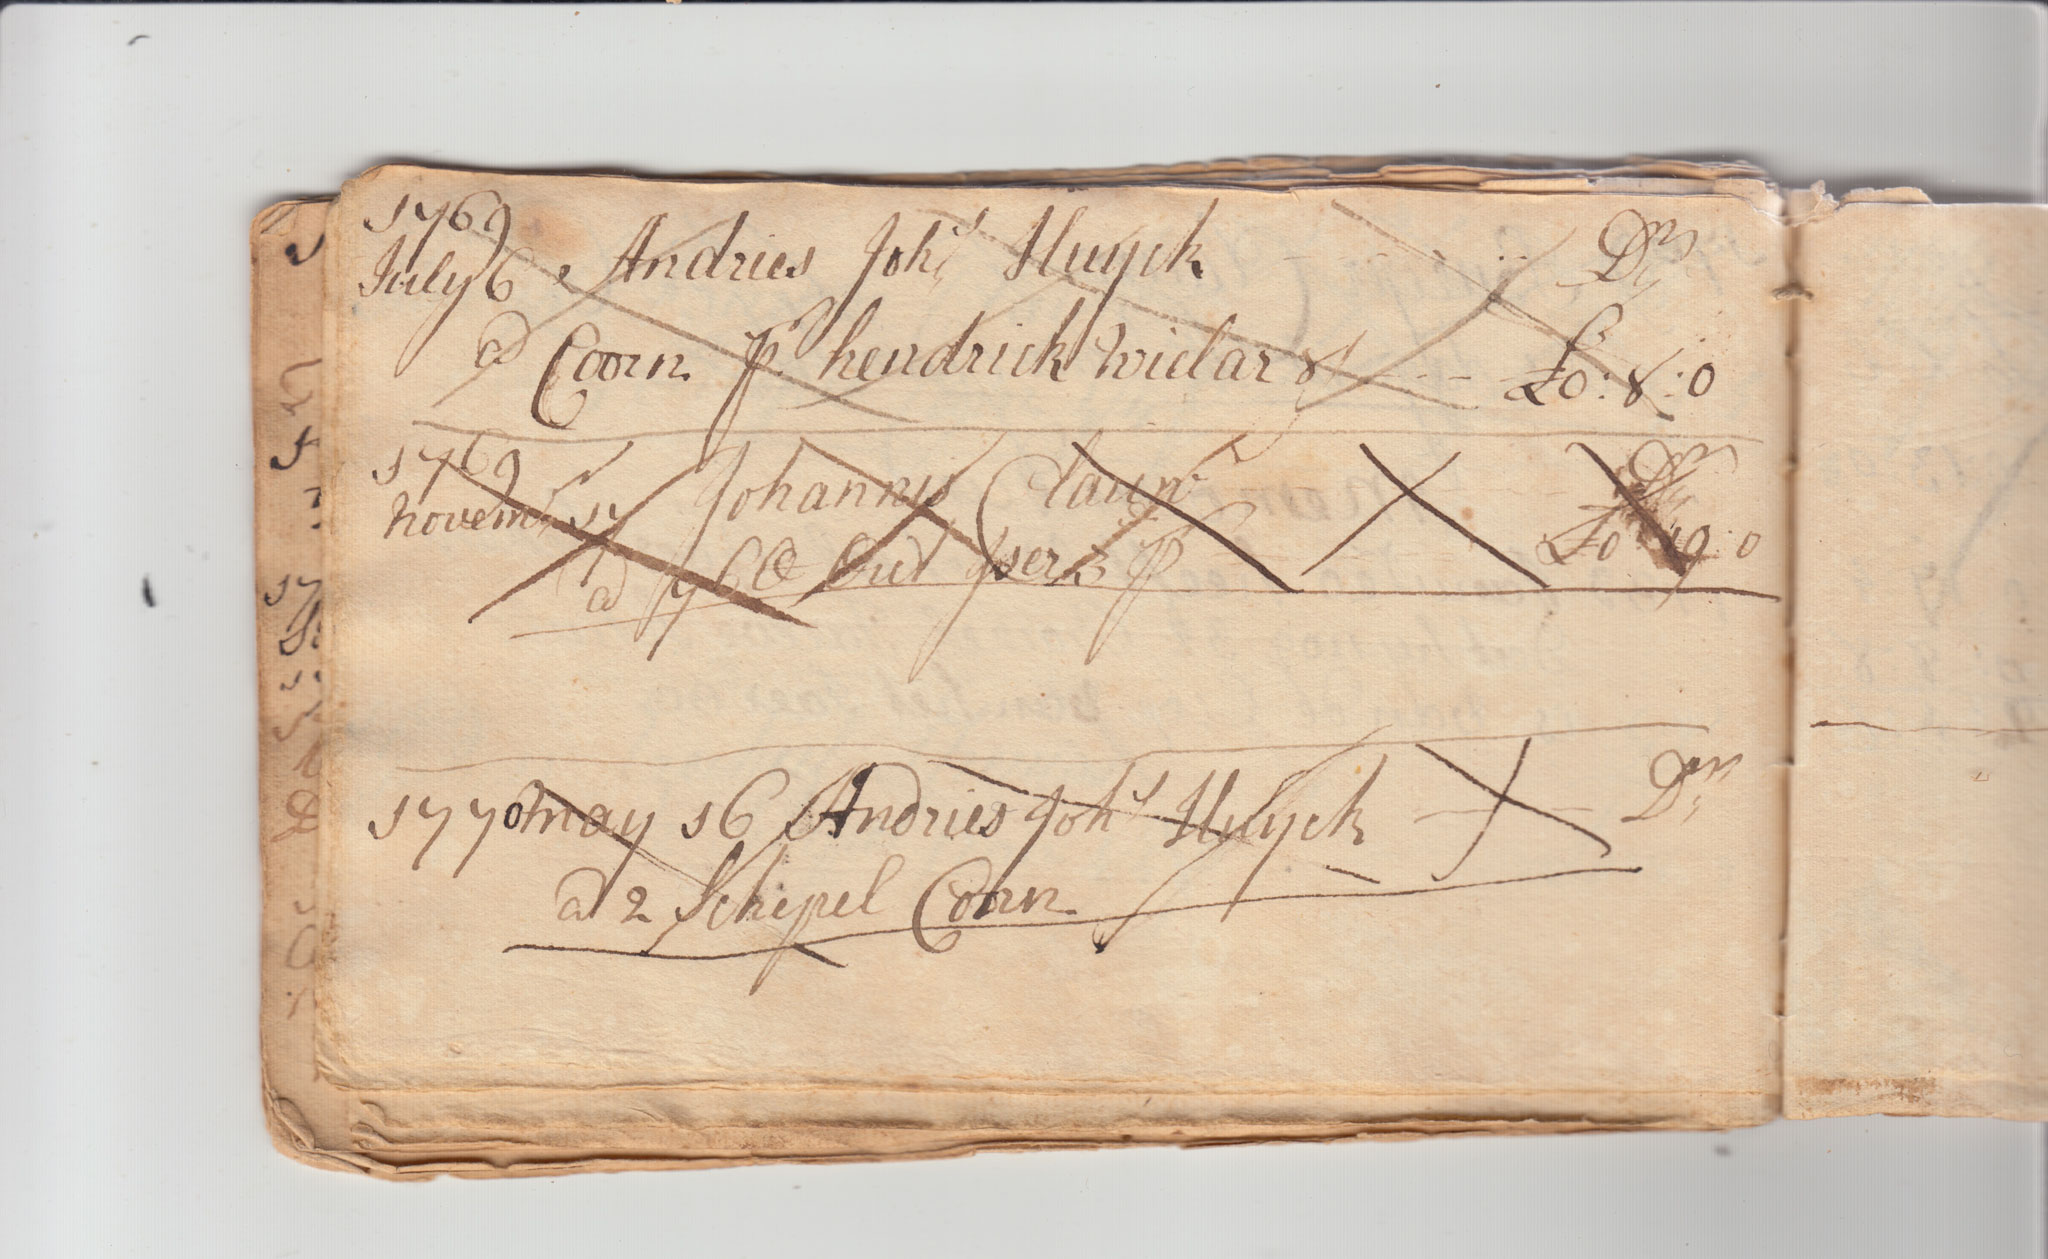 1769
July 6 Andries Joh^s Huyck D^r
a Coorn p^r hendrick Wielar 8/ £0:8:0
1769
novem^r 17 Johannis Clauw D^r
a 76 ℔ Oud Yser p^r £0:19:0
1770 may 16 Andries Joh^s Huyck D^r
a 2 Schepel Coorn